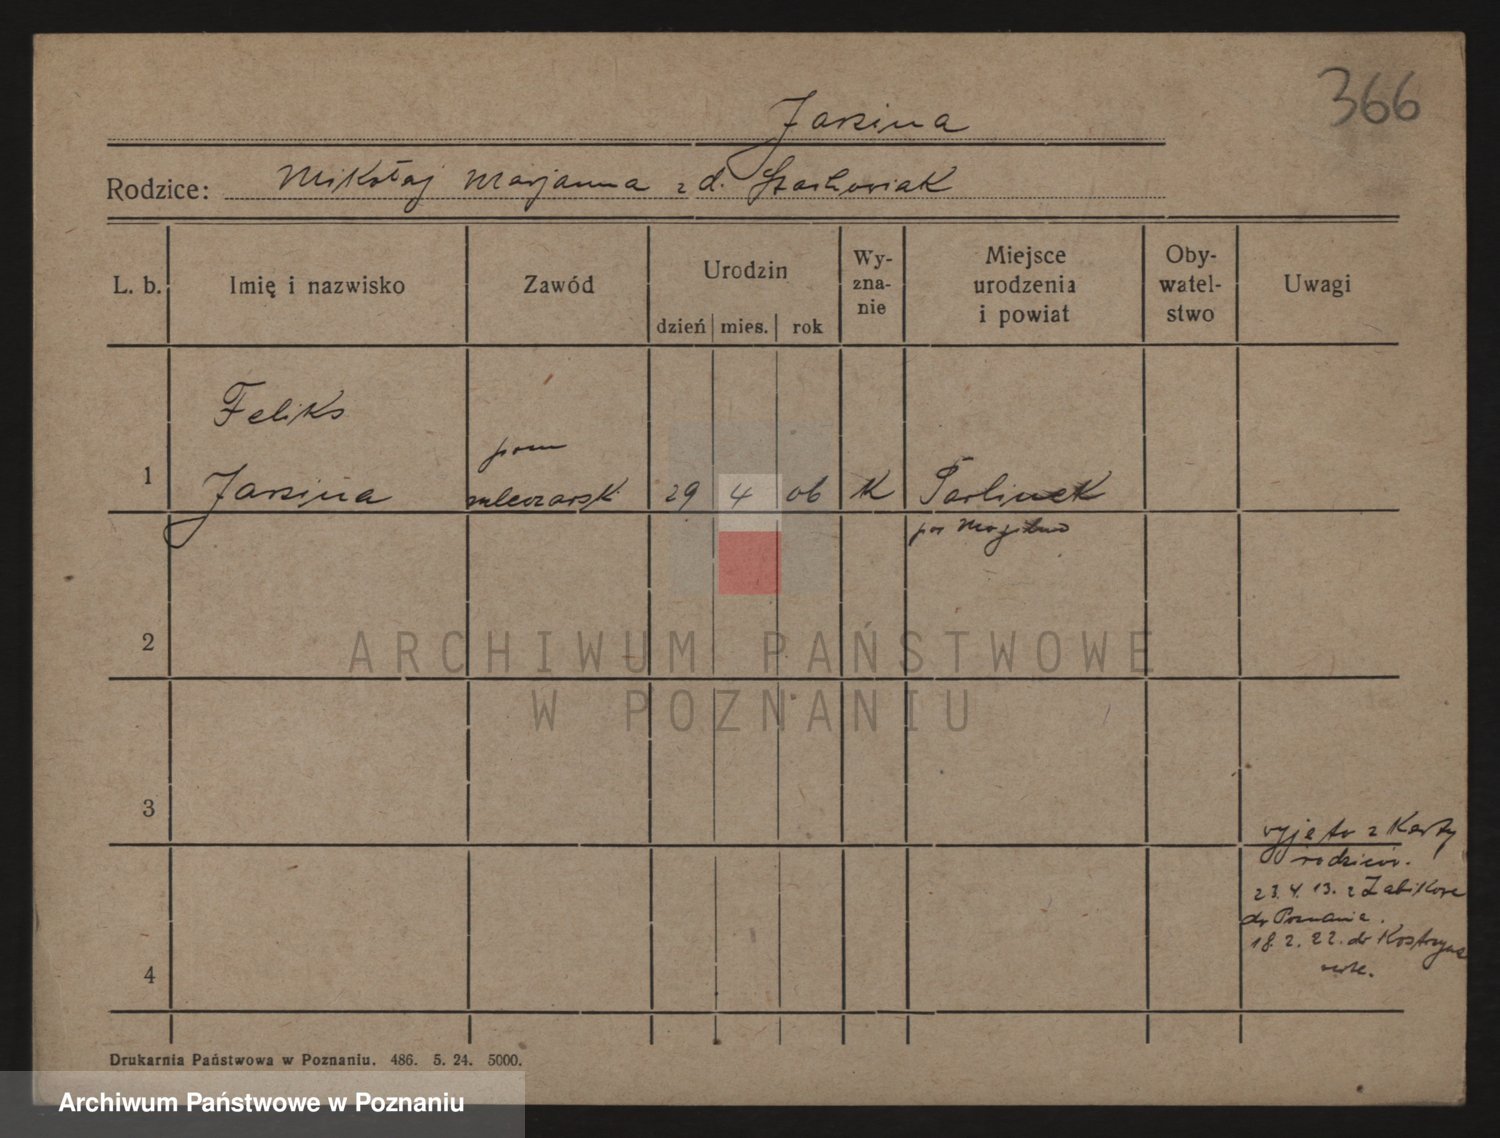 366
Jarzina
Rodzice: Mikołaj Marjanna z d. Stachowiak
L. b.
Imię i nazwisko
Zawód
Urodzin
dzień mies. rok
Wy-
zna-
nie
Miejsce
urodzenia
i powiat
Oby-
watel-
stwo
Uwagi
1
Feliks
Jarzina
pom
mleczarsk
29 4 06
K
Parlinek
pow Mogilno
2
3
4
wyjęto z Karty
rodziców.
23. 4. 13. z Żabikowa
do Poznania.
18. 2. 22. do Kostrzyna
Drukarnia Państwowa w Poznaniu. 486. 5. 24. 5000.
ARCHIWUM PAŃSTWOWE
W POZNANIU
Archiwum Państwowe w Poznaniu